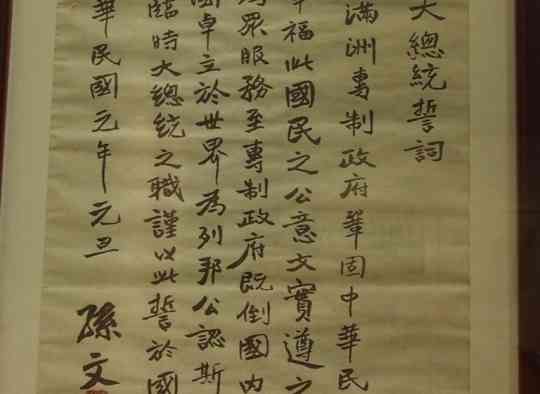 大總統誓詞
滿洲專制政府鞏固中華民
幸福此國民之公意文實遵之
為眾服務至專制政府既倒國內
國卓立於世界為列邦公認斯
臨時大總統之職謹以此誓於國
華民國元年元旦
孫文